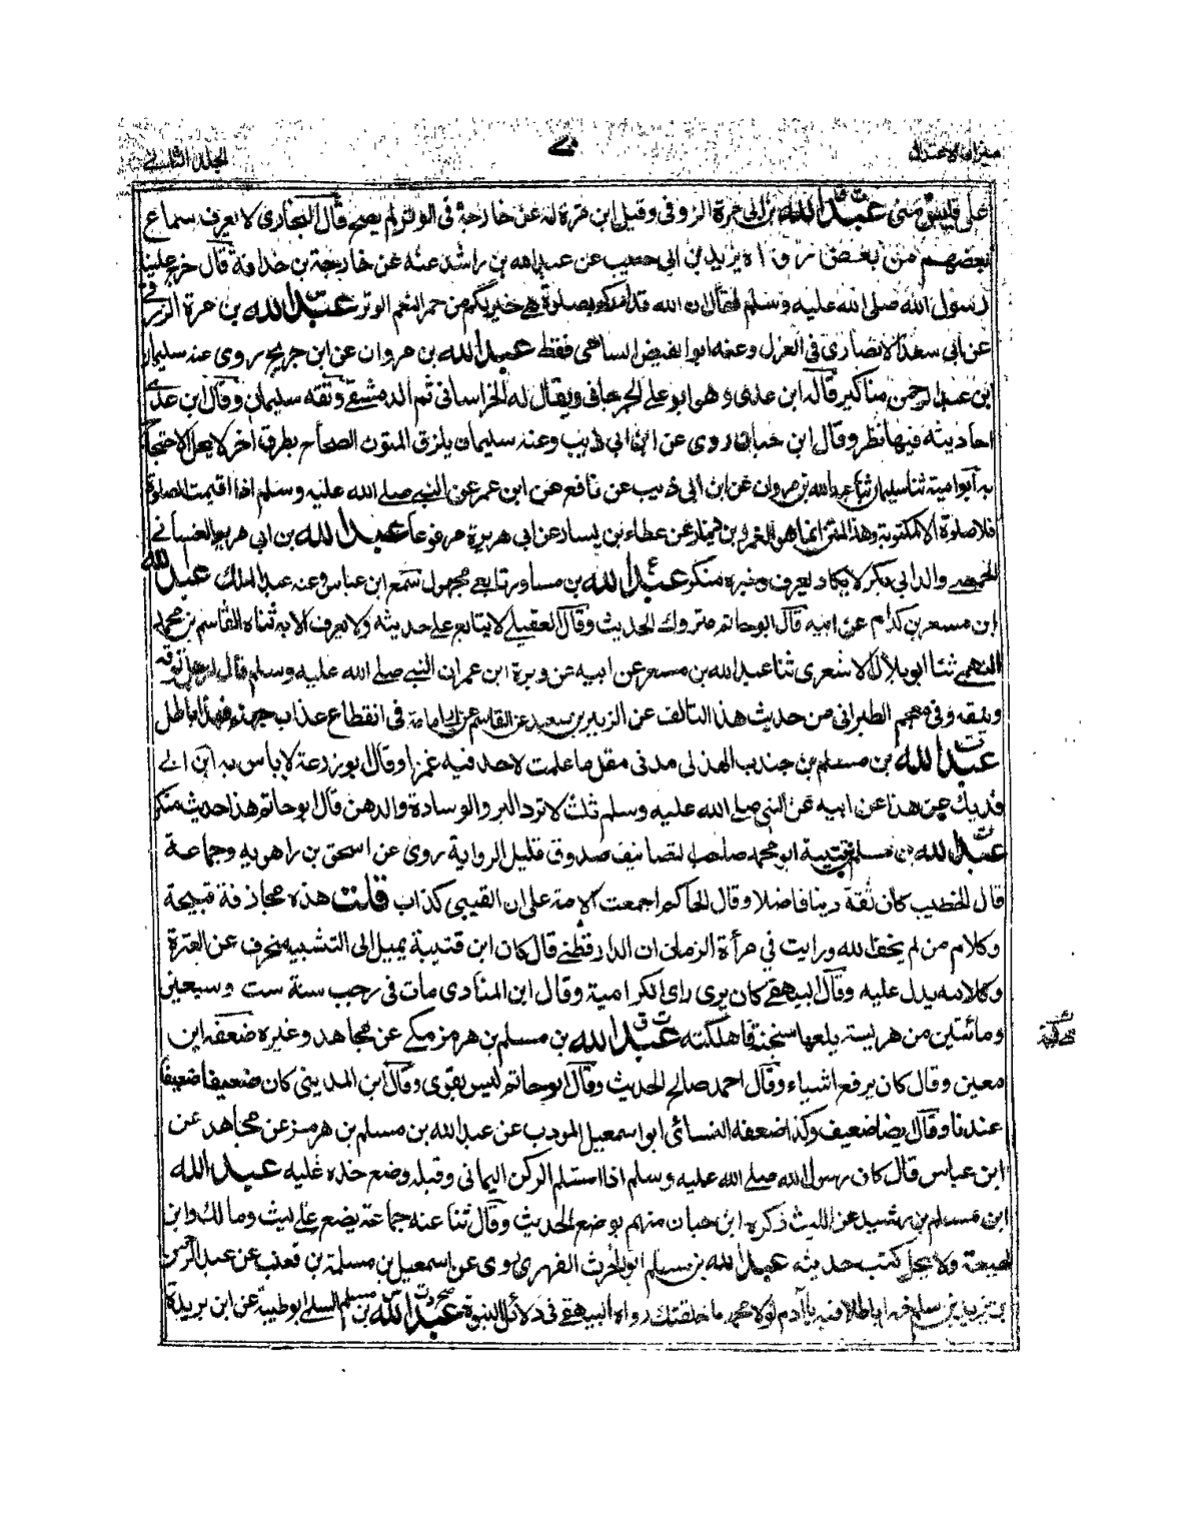 ميزان الاعتدال
٧٠
الجلد الثاني
على قليس منى عبد الله بن ابى مرة الزوفى وقيل ابن مرة له عن خارجة فى الوتر لم يصح قال البخارى لا يعرف سماع
بعضهم من بعض رواه يزيد بن ابى حبيب عن عبد الله بن راشد عنه عن خارجة بن حذافة قال خرج علينا
رسول الله صلى الله عليه وسلم فقال ان الله قد امدكم بصلوة هى خير لكم من حمر النعم الوتر عبد الله بن مرة الزرقى
عن ابى سعد الانصارى فى العزل وعنه ابو الفيض الشامى فقط عبد الله بن مروان عن ابن جريج روى عنه سليمان
بن عبد الرحمن مناكير قاله ابن عدى وهو ابو على الجرجانى ويقال له الخراسانى ثم الدمشقے وثقه سليمان وقال ابن عدے
احاديثه فيها نظر وقال ابن حبان روى عن ابن ابى ذئيب وعنه سليمان يلزق المتون الصحاح بطرق اخر لا يحل الاحتجاج
به ابو امية ثنا سليمان ثنا عبد الله بن مروان عن ابن ابى ذئيب عن نافع عن ابن عمر عن النبے صلے الله عليه وسلم اذا اقيمت الصلوة
فلا صلوة الا المكتوبة وهذا المتن انما هو لعمرو بن دينار عن عطاء بن يسار عن ابى هريرة مرفوعا عبد الله بن ابى مريم الغسانے
الحمصے والد ابى بكر لا يكاد يعرف وخبره منكر عبد الله بن مساور تابعے مجهول سمع ابن عباس وعنه عبد الملك عبد الله
ابن مسعر بن كدام عن ابيه قال ابو حاتم متروك الحديث وقال العقيلے لا يتابع على حديثه ولا يعرف الا به ثناه القاسم بن محمد
النهمے ثنا ابو بلال الاشعرى ثنا عبد الله بن مسعر عن ابيه عن وبرة ابن عمران النبے صلے الله عليه وسلم قال لرجل توقه
وبنقه وفى معجم الطبرانى من حديث هذا التالف عن الزبير بن سعيد عن القاسم عن ابى امامة فى انقطاع عذاب جهنم فهذا باطل
عبد الله بن مسلم بن جندب الهذلى مدنى مقل ما علمت لاحد فيه غمزا وقال بوزرعة لا باس به ابن ابے
فديك عن هذا عن ابيه عن النبى صلے الله عليه وسلم ثلث لا ترد البر والوسادة والدهن قال ابو حاتم هذا حديث منكر
عبد الله بن مسلم بن قتيبة ابو محمد صاحب التصانيف صدوق قليل الرواية روى عن اسحق بن راهويه وجماعة
قال الخطيب كان ثقة دينا فاضلا وقال الحاكم اجمعت الامة على ان القتيبى كذاب قلت هذه مجازفة قبيحة
وكلام من لم يخف الله ورايت في مرأة الزمان ان الدارقطنے قال كان ابن قتيبة يميل الى التشبيه منحرف عن العترة
وكلامه يدل عليه وقال البيهقے كان يرى راى الكرامية وقال ابن المنادى مات فى رجب سنة ست وسبعين
ومائتين من هريسة بلعها سخنة فاهلكته عبد الله بن مسلم بن هرمز مكے عن مجاهد وغيره ضعفه ابن
معين وقال كان يرفع اشياء وقال احمد صالح الحديث وقال ابو حاتم ليس بقوى وقال ابن المدينى كان ضعيفا ضعيفا
عندنا وقال ايضا ضعيف وكذا ضعفه النسائى ابو اسمعيل المودب عن عبد الله بن مسلم بن هرمز عن مجاهد عن
ابن عباس قال كان رسول الله صلے الله عليه وسلم اذا استلم الركن اليمانى وقبله وضع خده عليه عبد الله
ابن مسلم بن رشيد عن الليث ذكره ابن حبان متهم بوضع الحديث وقال ثنا عنه جماعة يضع على ليث ومالك وابن
لهيعة ولا يحل كتب حديثه عبد الله بن مسلم ابو الحرث الفهرى روى عن اسمعيل بن مسلمة بن قعنب عن عبد الرحمن
بن زيد بن سلم خبرا باطلا فيه يا آدم لولا محمد ما خلقتك رواه البيهقے فى دلائل النبوة عبد الله بن مسلم السلے ابو طيبة عن ابن بريدة